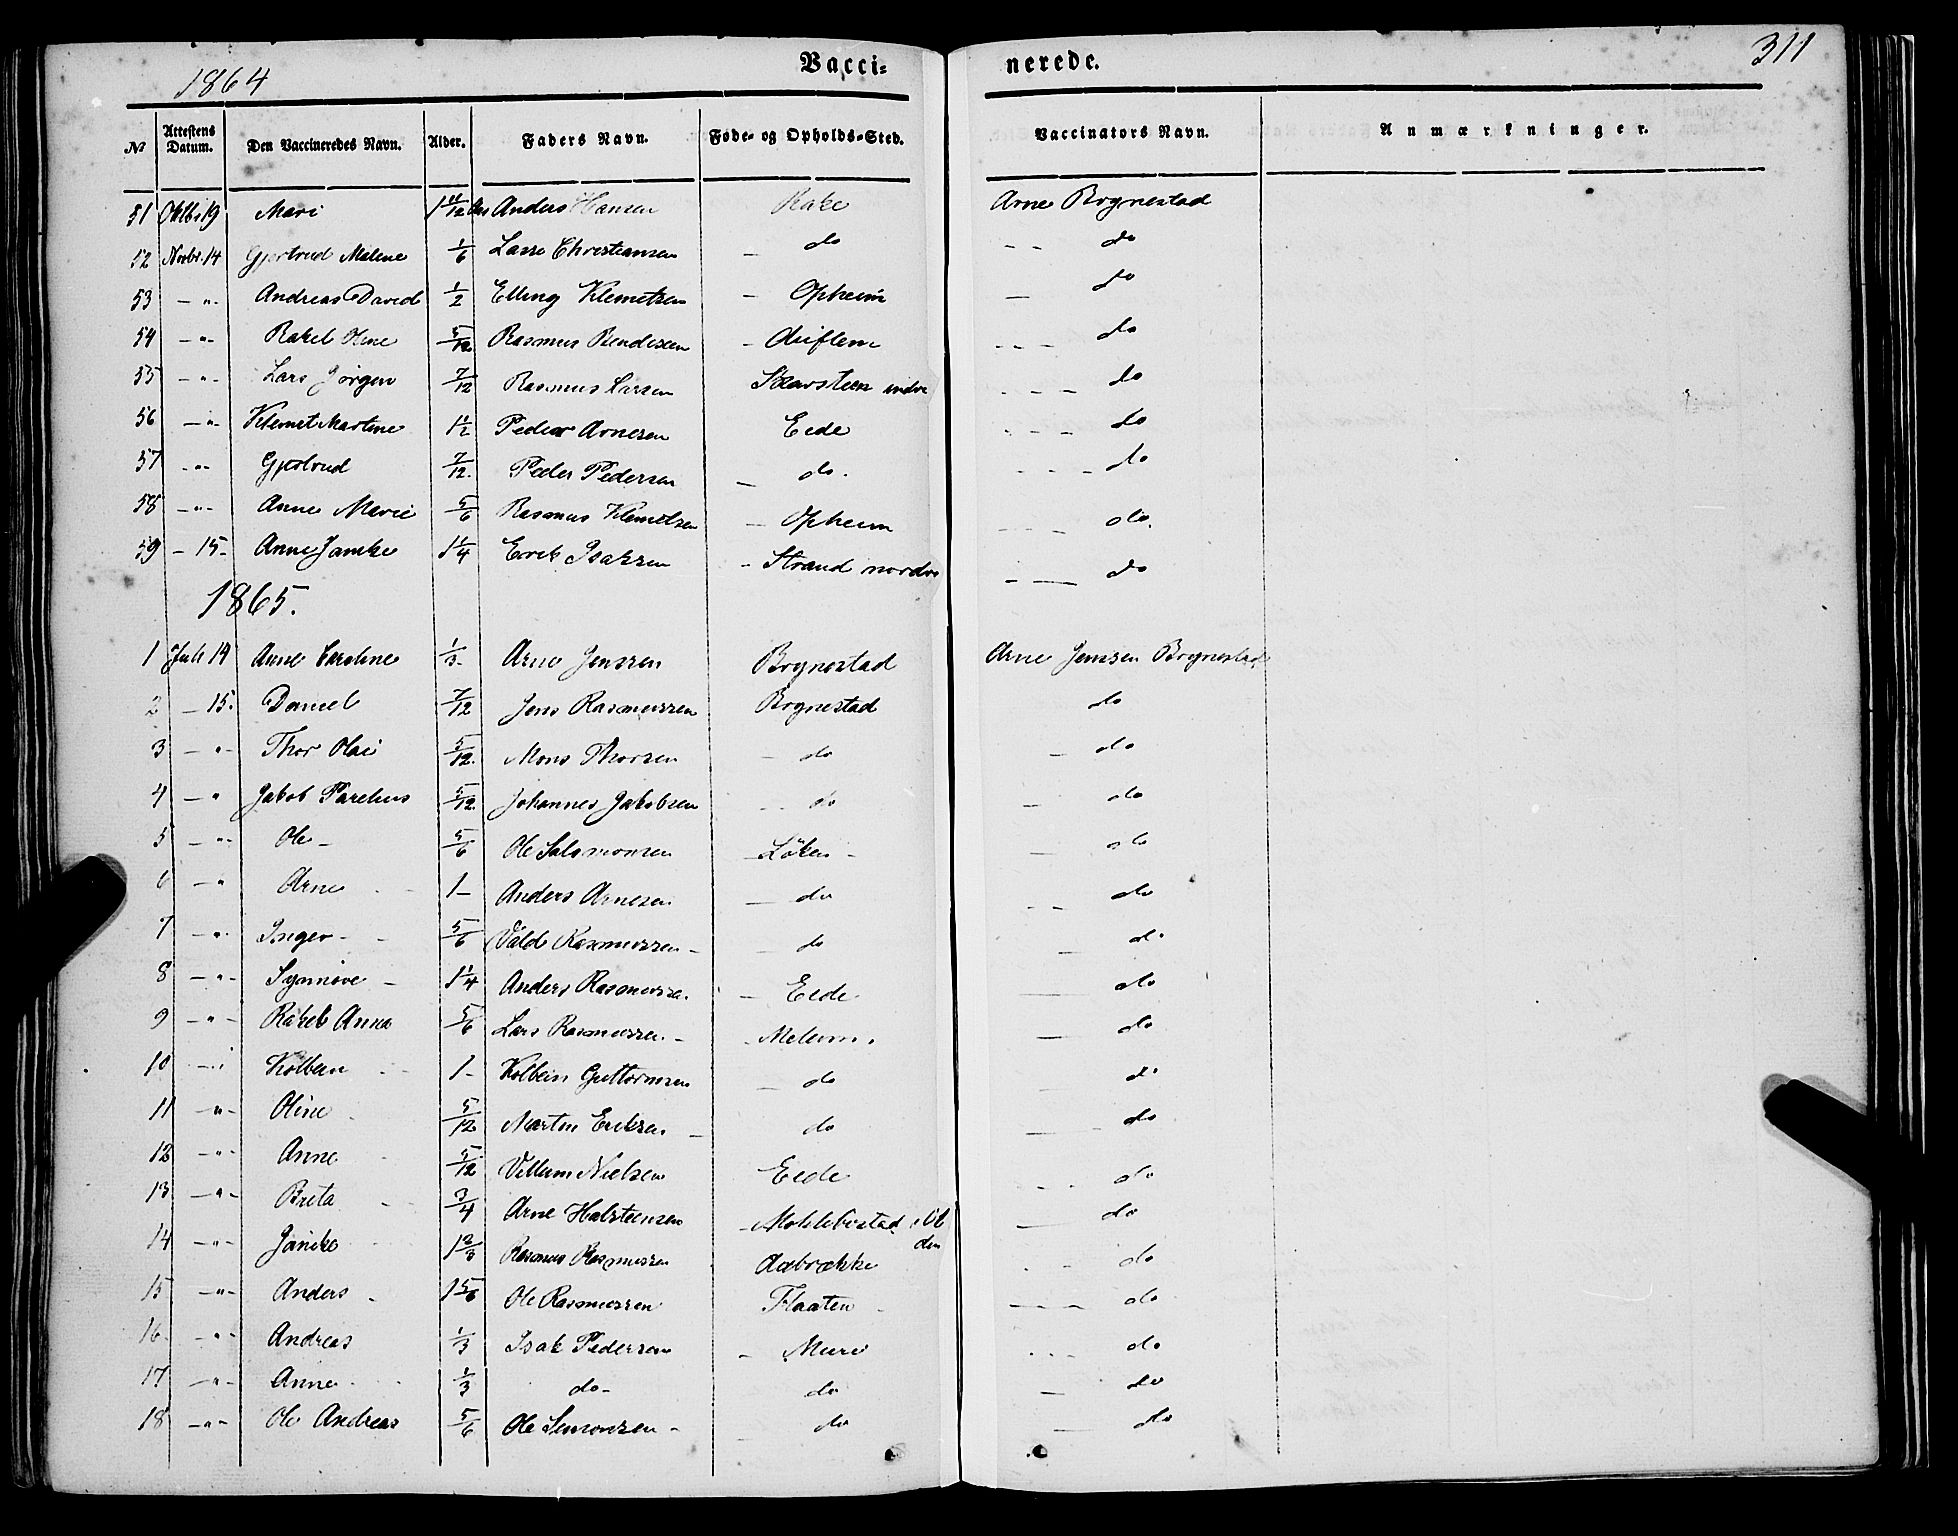 1864 Vacci- nerede. 311
№ Attestens Datum. Den Vaccineredes Navn. Alder. Faders Navn. Føde- og Opholds-Sted. Vaccinators Navn. Anmærkninger.
51 Oktbr 19 Mari 1 11/12 Anders Hansen Rake Arne Brynestad
52 Novbr. 14 Gjertrud Malene 1/6 Lasse Christiansen — do - - do
53 - " - Andreas David 1/2 Elling Klemetsen - Opheim — do
54 - " - Rakel Oline 5/12 Rasmus Bendixen - - - - do
55 - " - Lars Jørgen 7/12 Rasmus Larsen Skarsteen indre - - - do
56 - " - Klemet Martine 1 1/2 Peder Arnesen Eede - - - do
57 - " - Gjertrud 7/12. Peder Pedersen — do. - - - - do
58 - " - Anne Marie 5/6 Rasmus Klemetsen - Opheim - - - do.
59 - 15 - Anne Janike 1 1/4 Erik Isaksen - Strand nordre - — do
1865.
1 Juli 14 Anne Caroline 1/3- Arne Jenssen Brynestad Arne Jenssen Brynestad
2 - 15. Daniel 7/12 Jens Rasmussen Brynestad do
3 - " - Thor Olai 5/12. Mons Thorsen - do - do
4 - " Jakob Parelius 5/12. Johannes Jakobsen - - do - do
5 - " - Ole - 5/6 Ole Salomonsen - Löken - — do
6 - " Arne 1- Anders Arnesen — do - - do
7 - " - Inger - 5/6 Rasmussen - - do — do
8 - " - Synnøve - 1 1/4 Anders Rasmussen. - Eede. — do
9 - " - Rakel Anna 5/6 Lars Rasmussen. - - Melum. — do
10 - " Kolbein 1- Kolbein Guttormsen - do — do
11 - " - Oline 5/12 Martin Eriksen - do — do
12 - " - Anne 5/12 Villum Nielsen Eede - - - do
13 - " - Brita 3/4 Arne Halsteensen - i Olden — do
14 - " - Janike 1 2/3 Rasmus Rasmussen Aabrække - do
15 - " - Anders - 1 5/6 Ole Rasmussen Flaaten - - - - do
16. - " - Andreas 1/3 Isak Pedersen - Muri - - - do
17 - " - Anne 1/3 do - do — do
18 - " - Ole Andreas 5/6 Ole Simonsen - do — do